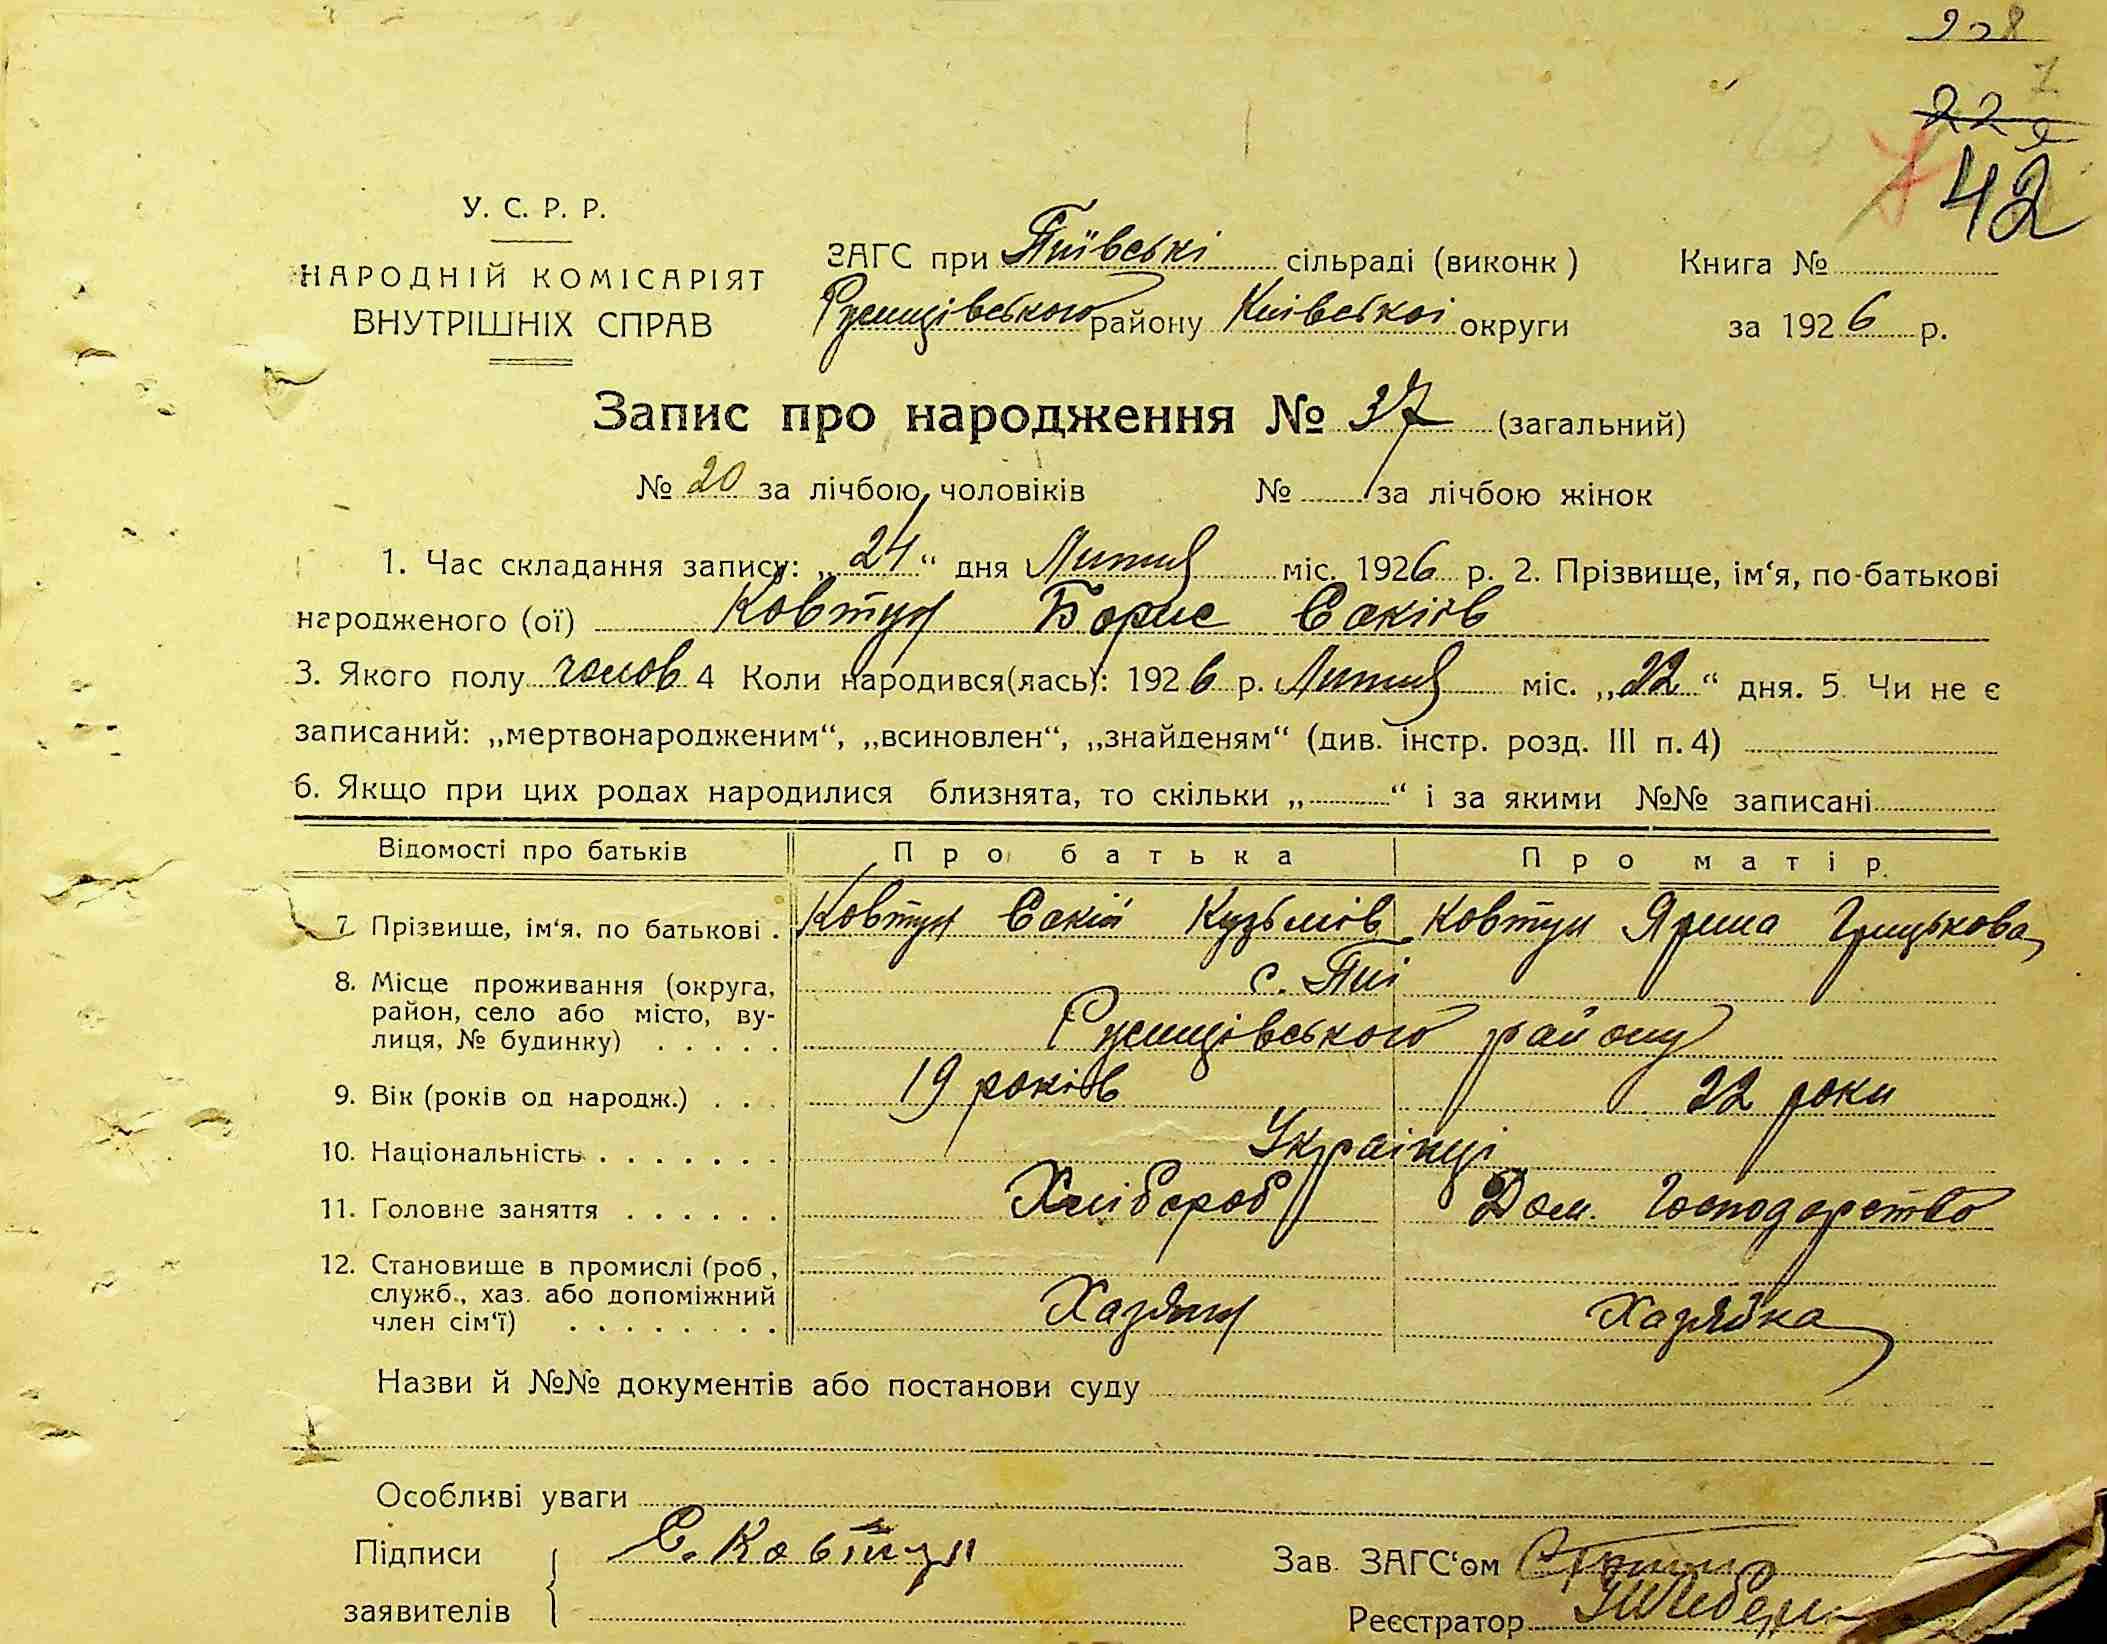 228
42
У. С. Р. Р.
НАРОДНІЙ КОМІСАРІЯТ
ВНУТРІШНІХ СПРАВ
ЗАГС при Пиївські сільраді (виконк)
Ржищівського району Київської округи
Книга №
за 1926 р.
Запис про народження № 37 (загальний)
№ 20 за лічбою чоловіків № за лічбою жінок
1. Час складання запису: „24“ дня Лютня міс. 1926 р. 2. Прізвище, ім‘я, по-батькові
народженого (ої) Ковтун Борис Єакіїв
3. Якого полу чолов 4 Коли народився(лась): 1926 р. Лютня міс. „22“ дня. 5. Чи не є
записаний: „мертвонародженим“, „всиновлен“, „знайденям“ (див. інстр. розд. III п. 4)
6. Якщо при цих родах народилися близнята, то скільки „ “ і за якими №№ записані
Відомості про батьків Про батька Про матір.
7. Прізвище, ім‘я, по батькові . Ковтун Єакій Кузьмів Ковтун Ярина Грицькова
8. Місце проживання (округа, с. Пиї
район, село або місто, ву-
лиця, № будинку) . . . . . Ржищівського району
9. Вік (років од народж.) . . . 19 років 22 роки
10. Національність . . . . . . . Українці
11. Головне заняття . . . . . . Хлібороб Дом. Господарство
12. Становище в промислі (роб.,
служб., хаз. або допоміжний Хазяин Хазяйка
член сім‘ї) . . . . . . . .
Назви й №№ документів або постанови суду
Особливі уваги
Підписи Є. Ковтун
заявителів
Зав. ЗАГС‘ом
Реєстратор